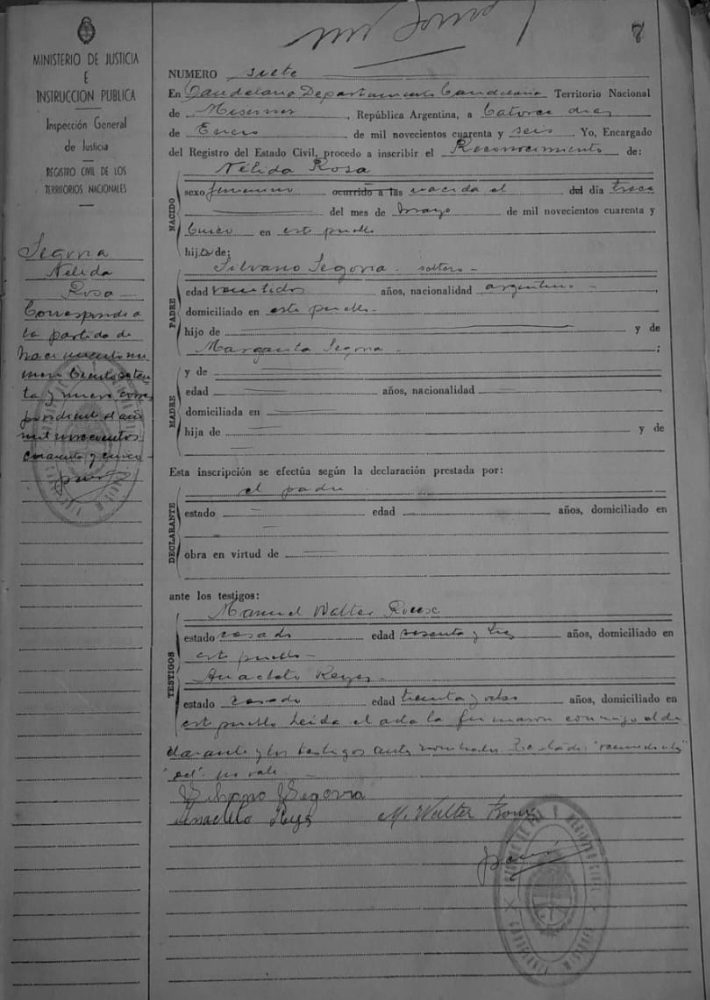 7
MINISTERIO DE JUSTICIA
E
INSTRUCCION PUBLICA
Inspección General
de Justicia
REGISTRO CIVIL DE LOS
TERRITORIOS NACIONALES
Segovia
Nélida
Rosa
Corresponde a
la partida de
nacimiento nu
mero
ta y nueve corres
pondiente al año
mil novecientos
cuarenta y cinco
NUMERO siete
En Candelaria Departamento Candelaria Territorio Nacional
de Misiones, República Argentina, a Catorce dias
de Enero de mil novecientos cuarenta y seis Yo, Encargado
del Registro del Estado Civil, procedo a inscribir el Reconocimiento de:
Nélida Rosa
NACIDO
sexo femenino ocurrido a las nacida el del día trece
del mes de mayo de mil novecientos cuarenta y
cinco en este pueblo
hija de:
PADRE
Silvano Segovia soltero
edad veintidos años, nacionalidad argentino
domiciliado en este pueblo
hijo de y de
Margarita Segovia ;
MADRE
y de
edad años, nacionalidad
domiciliada en
hija de y de
Esta inscripción se efectúa según la declaración prestada por:
el padre
DECLARANTE
estado edad años, domiciliado en
obra en virtud de
ante los testigos:
TESTIGOS
Manuel Walter
estado casado edad sesenta y tres años, domiciliado en
este pueblo
Anacleto Reyes
estado casado edad treinta y años, domiciliado en
este pueblo Leida el acta la firmaron conmigo el de
clarante y los testigos antes nombrados
"del" no vale
Silvano Segovia
Anacleto Reyes M. Walter